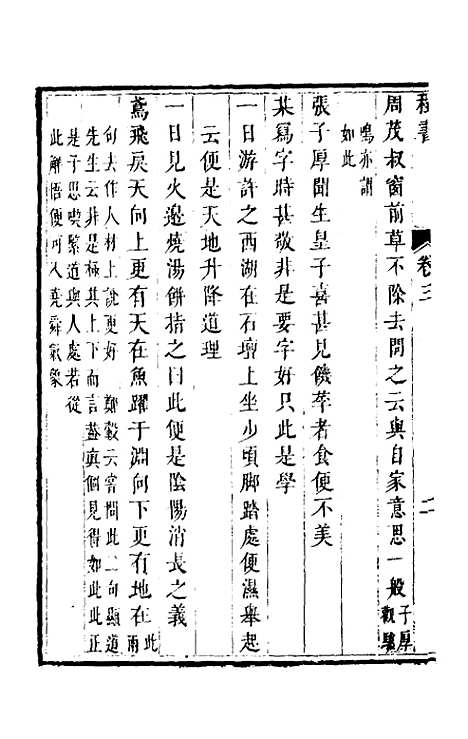 程書 卷三 二
周茂叔窗前草不除去問之云與自家意思一般子厚觀驢
鳴亦謂如此
張子厚聞生皇子喜甚見餓莩者食便不美
某寫字時甚敬非是要字好只此是學
一日游許之西湖在石壇上坐少頃脚踏處便濕舉起
云便是天地升降道理
一日見火邊燒湯缾指之曰此便是陰陽消長之義
鳶飛戾天向上更有天在魚躍于淵向下更有地在此兩
句去作人材上說更好　鄭轂云嘗問此二句顯道
先生云非是極其上下而言葢真個見得如此此正
是子思喫緊道與人處若從
此解悟便可入堯舜氣象